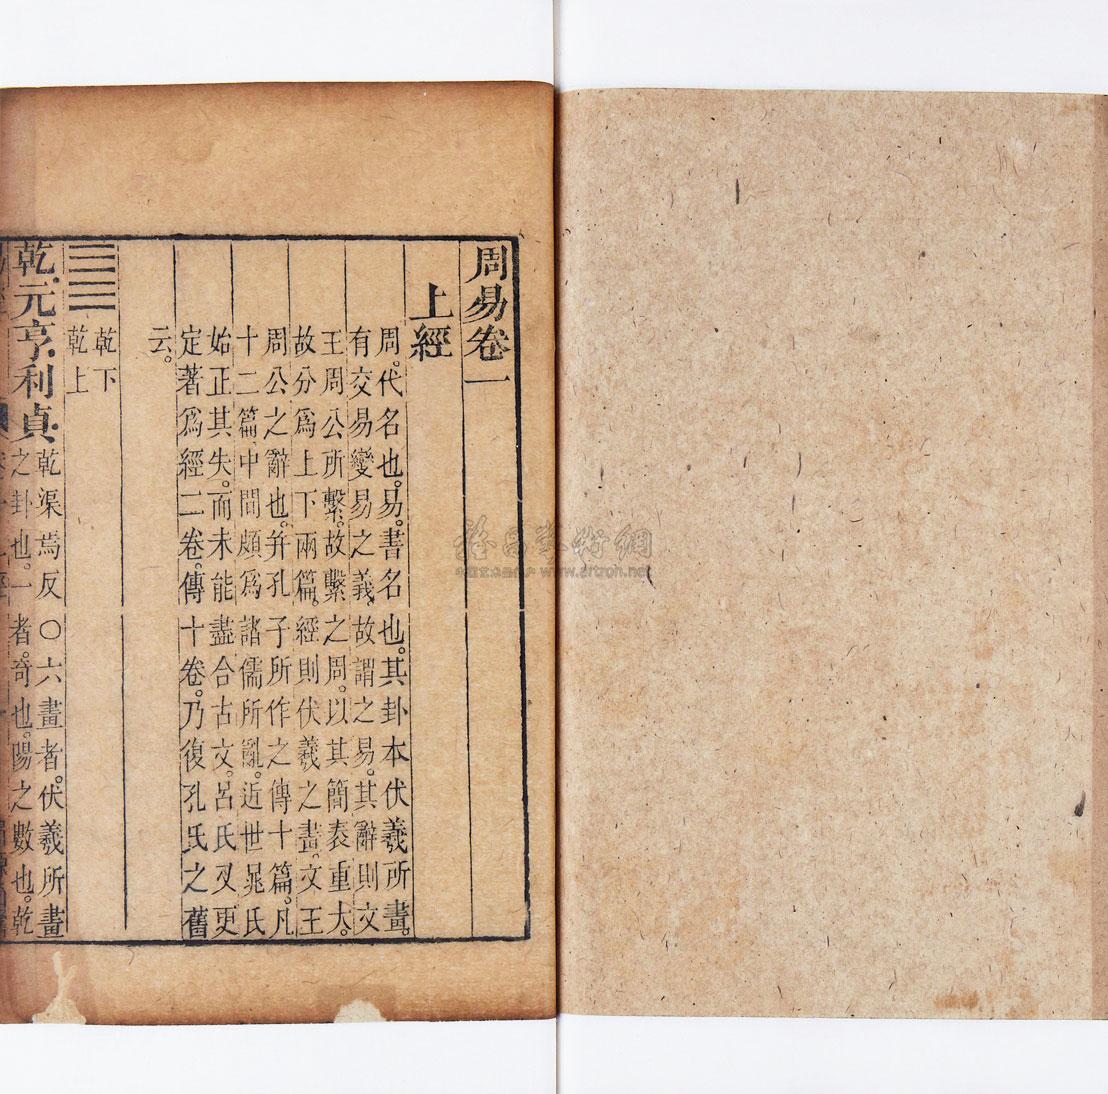 周易卷一
上經
周。代名也。易。書名也。其卦本伏羲所畫。
有交易變易之義。故謂之易。其辭則文
王周公所繫。故繫之周。以其簡袠重大。
故分爲上下兩篇。經則伏羲之畫。文王
周公之辭也。并孔子所作之傳十篇。凡
十二篇。中間頗爲諸儒所亂。近世晁氏
始正其失。而未能盡合古文。呂氏又更
定著爲經二卷。傳十卷。乃復孔氏之舊
云。
乾下
乾上
乾。元亨。利貞。
乾渠焉反〇六畫者。伏羲所畫
之卦也。一者。奇也。陽之數也。乾
www.artron.net